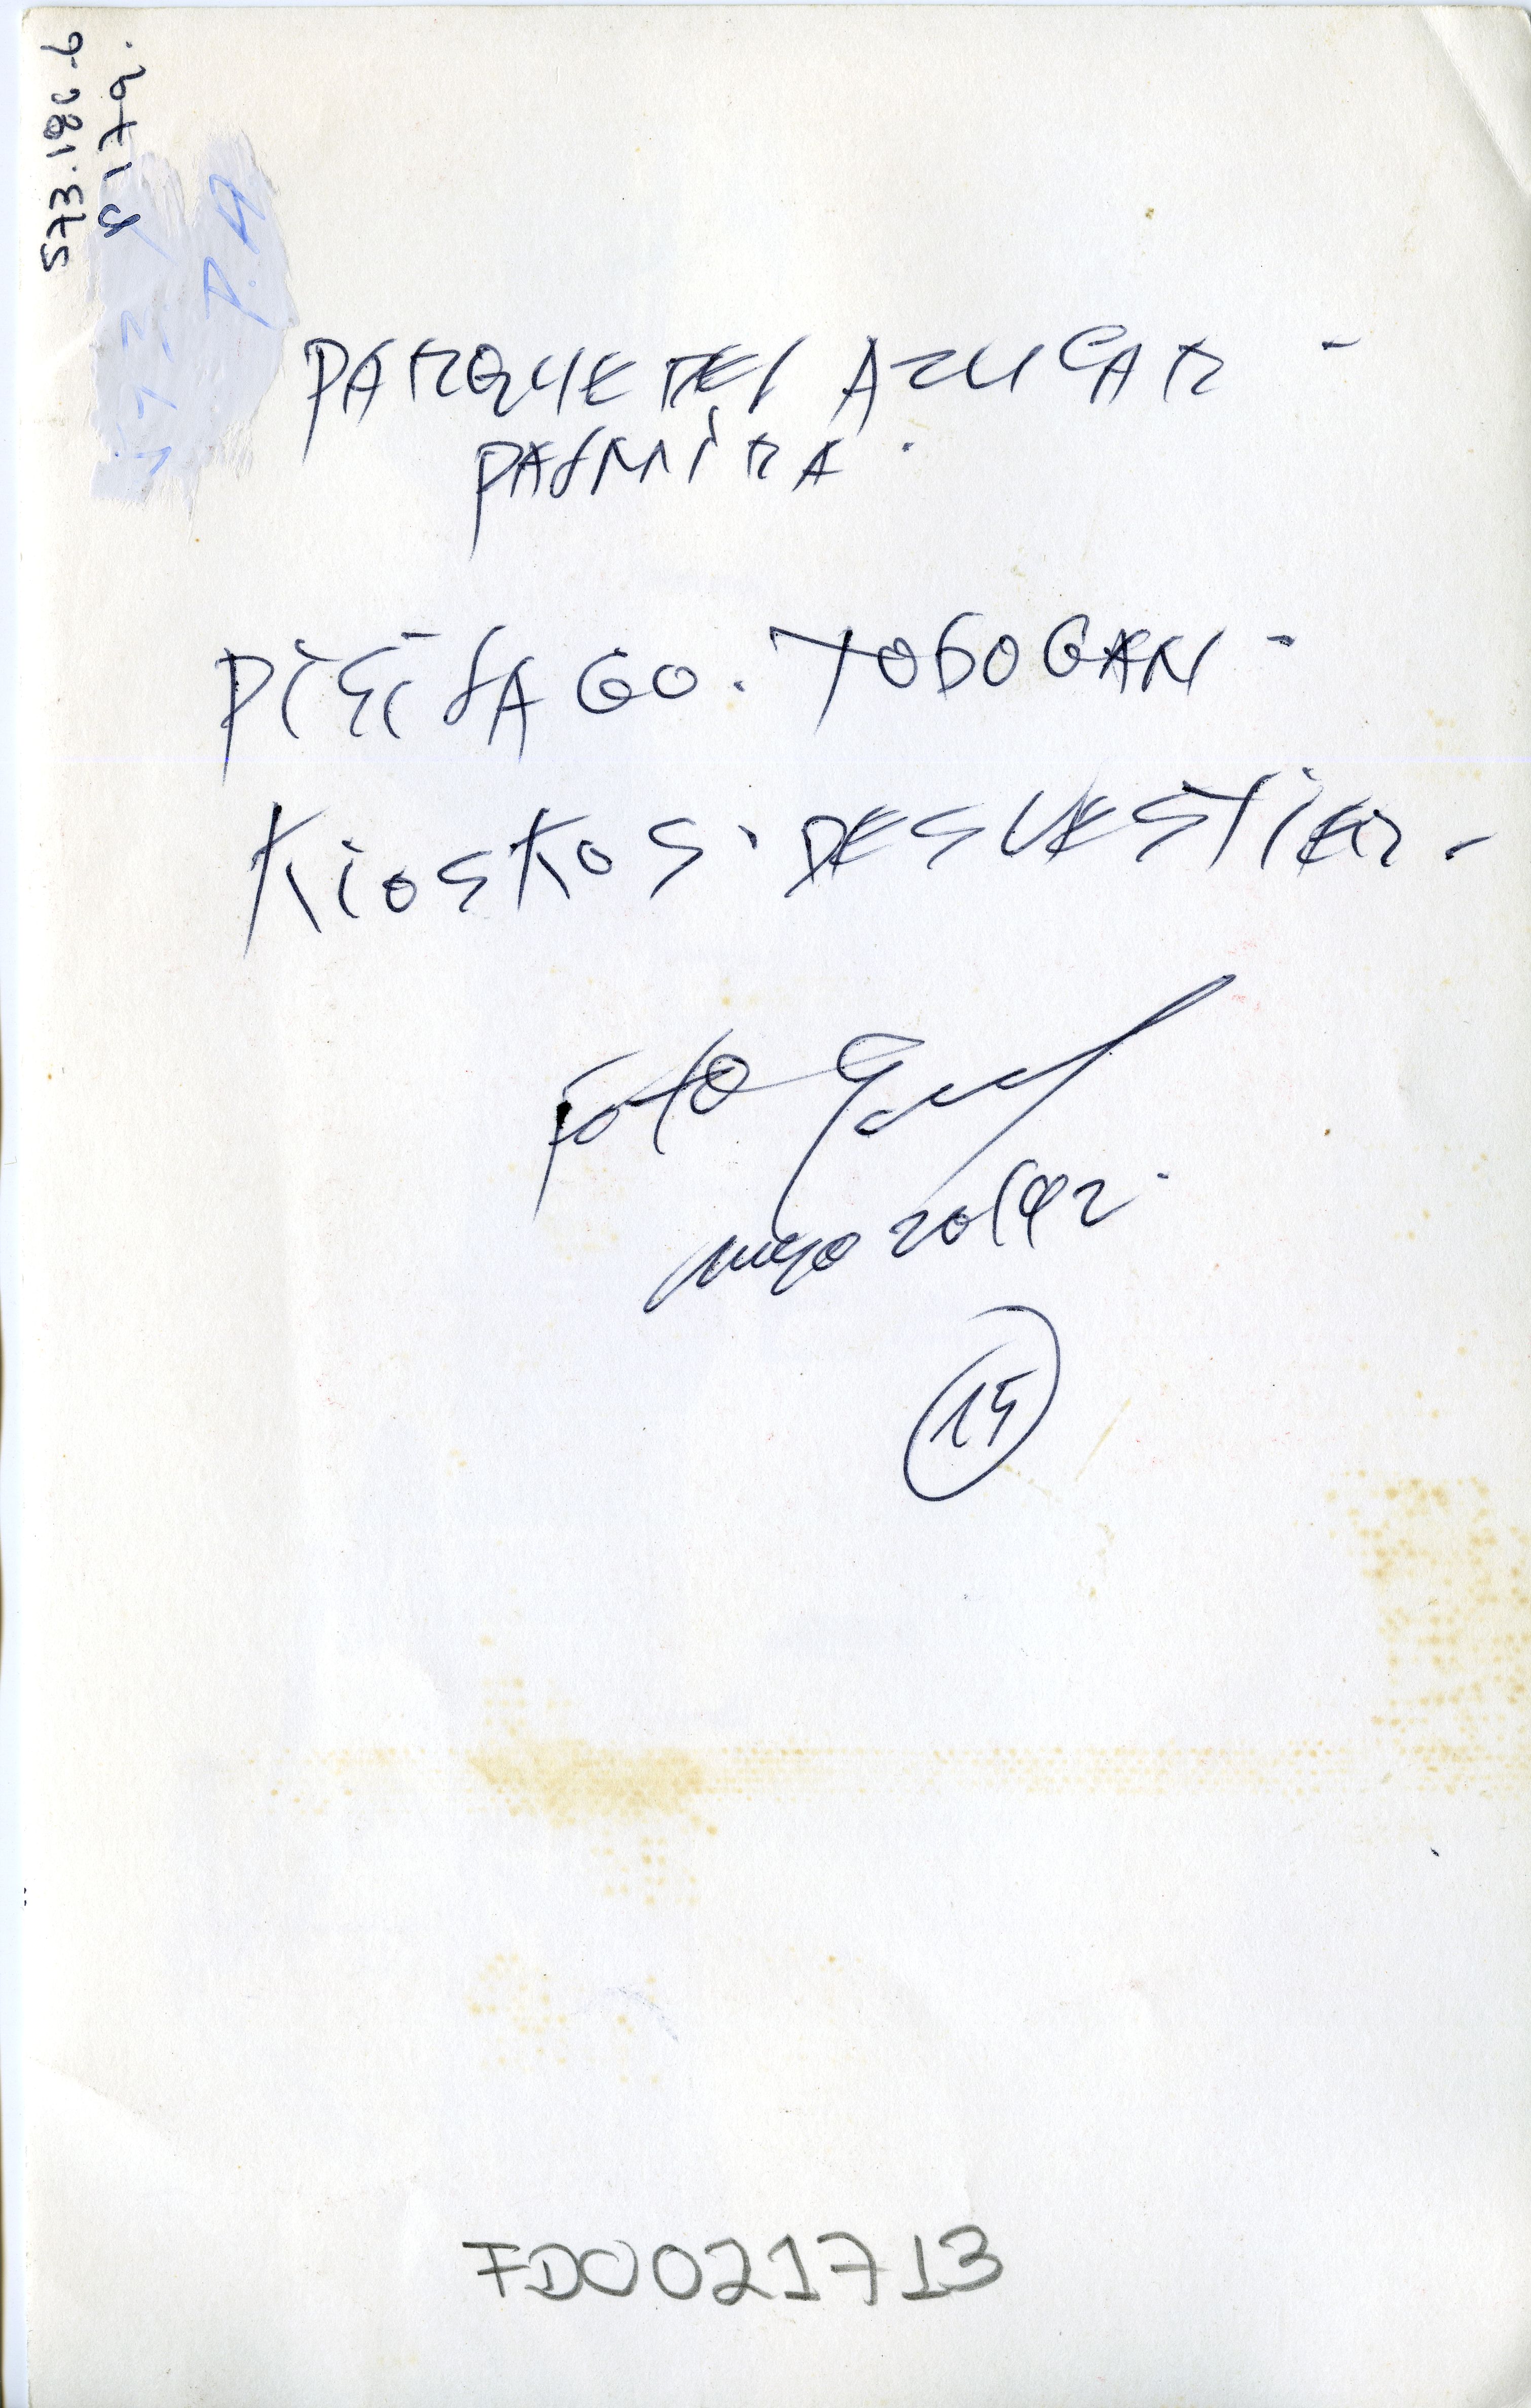 573.180-6
PARQUE DEL AZUCAR -
PALMIRA.
PICILAGO. TOBOGAN -
KIOSKOS. DESVESTIER -
Foto
mayo 20/92.
15
FD0021713